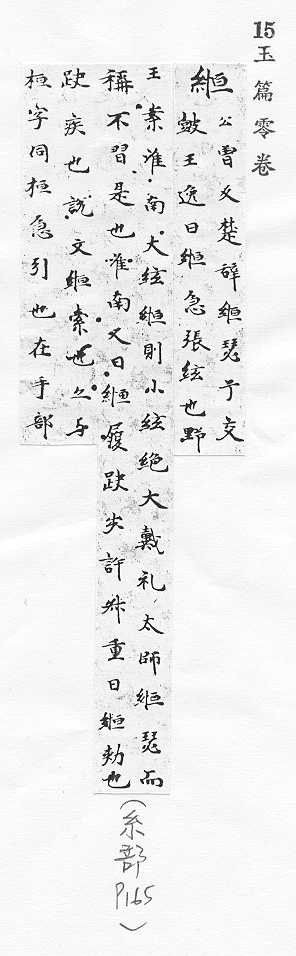 15玉篇零卷
絙
公曽反楚辞絙瑟兮交
鼓王逸曰絙急張絃也野
王案淮南大絃絙則小絃絶大戴礼太師絙瑟而
稱不習是也淮南又曰絙履趹步許叔重曰絙勑也
趹疾也說文絙索也亦与
桓字同桓急引也在手部
(糸部P165)